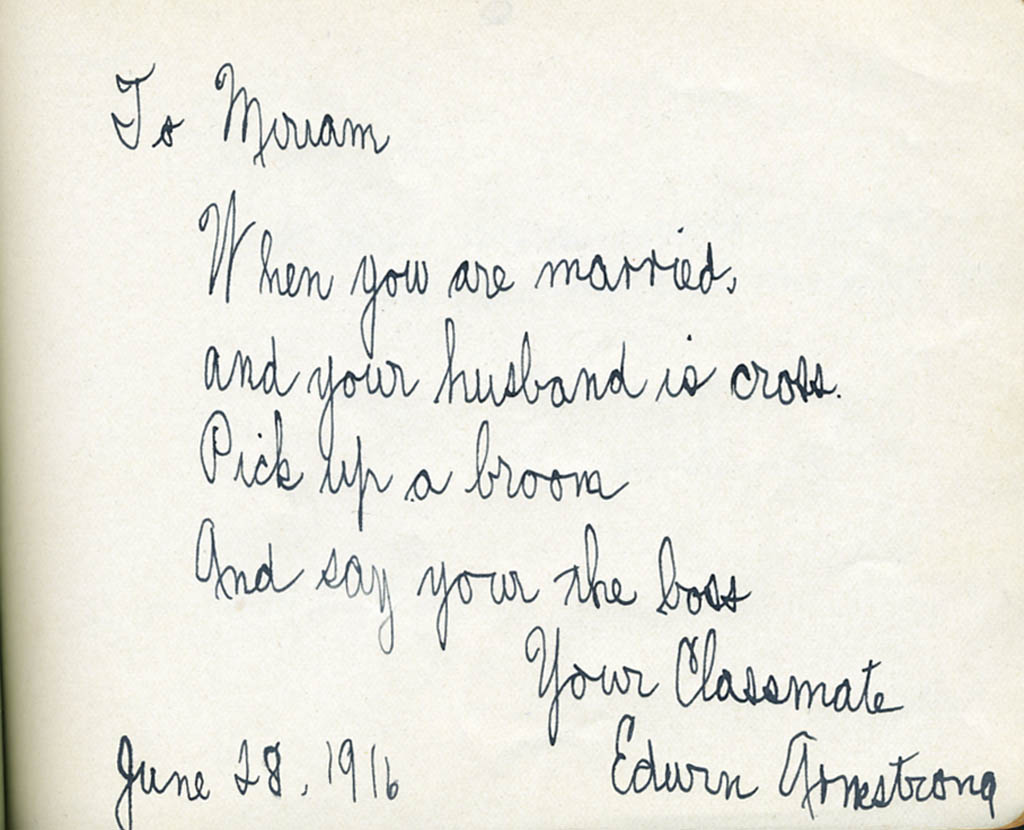 To Miriam
When you are married,
and your husband is cross.
Pick up a broom
And say your the boss
Your Classmate
June 28, 1916 Edwin Armstrong